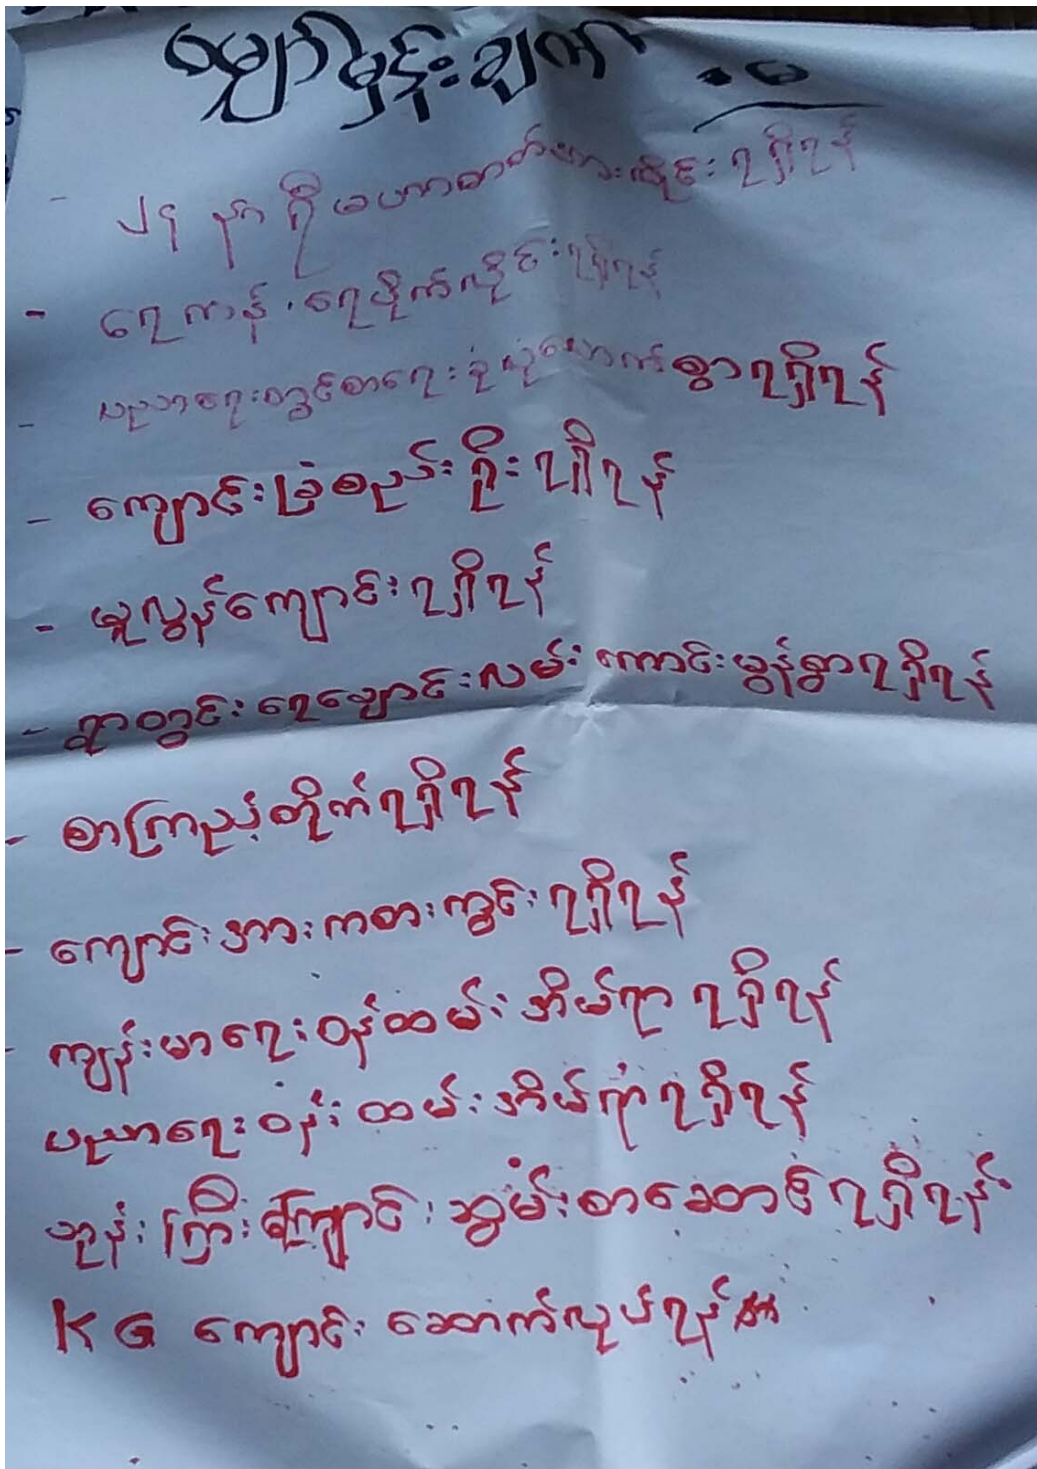 မျှော်မှန်းချက် . မ
- ၂၄ နာရီ မဟာဓာတ်အားလိုင်း ရရှိရန်
- ရေကန် ၊ ရေပိုက်လိုင်းရရှိရန်
- ပညာရေးတွင်စာရေးခုံလုံလောက်စွာရရှိရန်
- ကျောင်းခြံစည်းရိုးရရှိရန်
- မူလွန်ကျောင်းရရှိရန်
- ရွာတွင်း ရေမျောင်းလမ်း ကောင်းမွန်စွာရရှိရန်
- စာကြည့်တိုက်ရရှိရန်
- ကျောင်းအားကစားကွင်းရရှိရန်
- ကျန်းမာရေးဝန်ထမ်းအိမ်ရာ ရရှိရန်
ပညာရေးဝန်းထမ်းအိမ်ရာရရှိရန်
ဘုန်းကြီးကျောင်းဆွမ်းစာဆောင်ရရှိရန်
KG ကျောင်း ဆောက်လုပ်ရန်